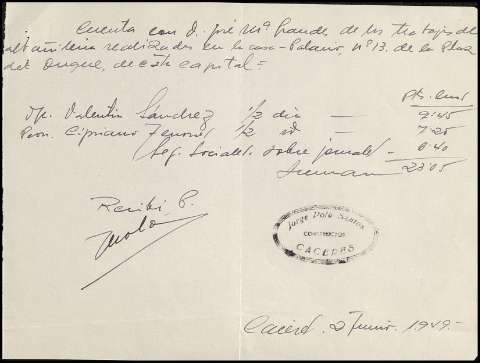 Cuenta con D. José Mª Grande, de los trabajos de
albañileria realizados en la casa-Palacio, nº 13. de la Plaza
del Duque, de esta capital=
pts. cms
Of. Valentin Sánchez 1/2 dia — 9'45
Peon. Cipriano 1/2 id — 7'20
Seg. Sociales sobre jornales - 6'40
Suman 23'05
Recibi, P.
Jorge Polo Santos
CONSTRUCTOR
CACERES
Caceres. 2 Junio. 1949.-